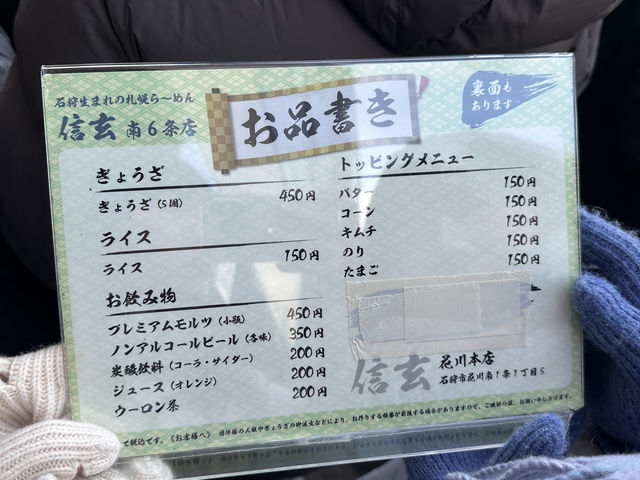 石狩生まれの札幌ら〜めん
信玄 南6条店
お品書き
裏面も
あります
ぎょうざ
ぎょうざ(5個) 450円
ライス
ライス 150円
お飲み物
プレミアムモルツ(小瓶) 450円
ノンアルコールビール(各種) 350円
炭酸飲料(コーラ・サイダー) 200円
ジュース(オレンジ) 200円
ウーロン茶 200円
トッピングメニュー
バター 150円
コーン 150円
キムチ 150円
のり 150円
たまご 150円
信玄 花川本店
石狩市花川南1条1丁目5
て税込です。《お客様へ》